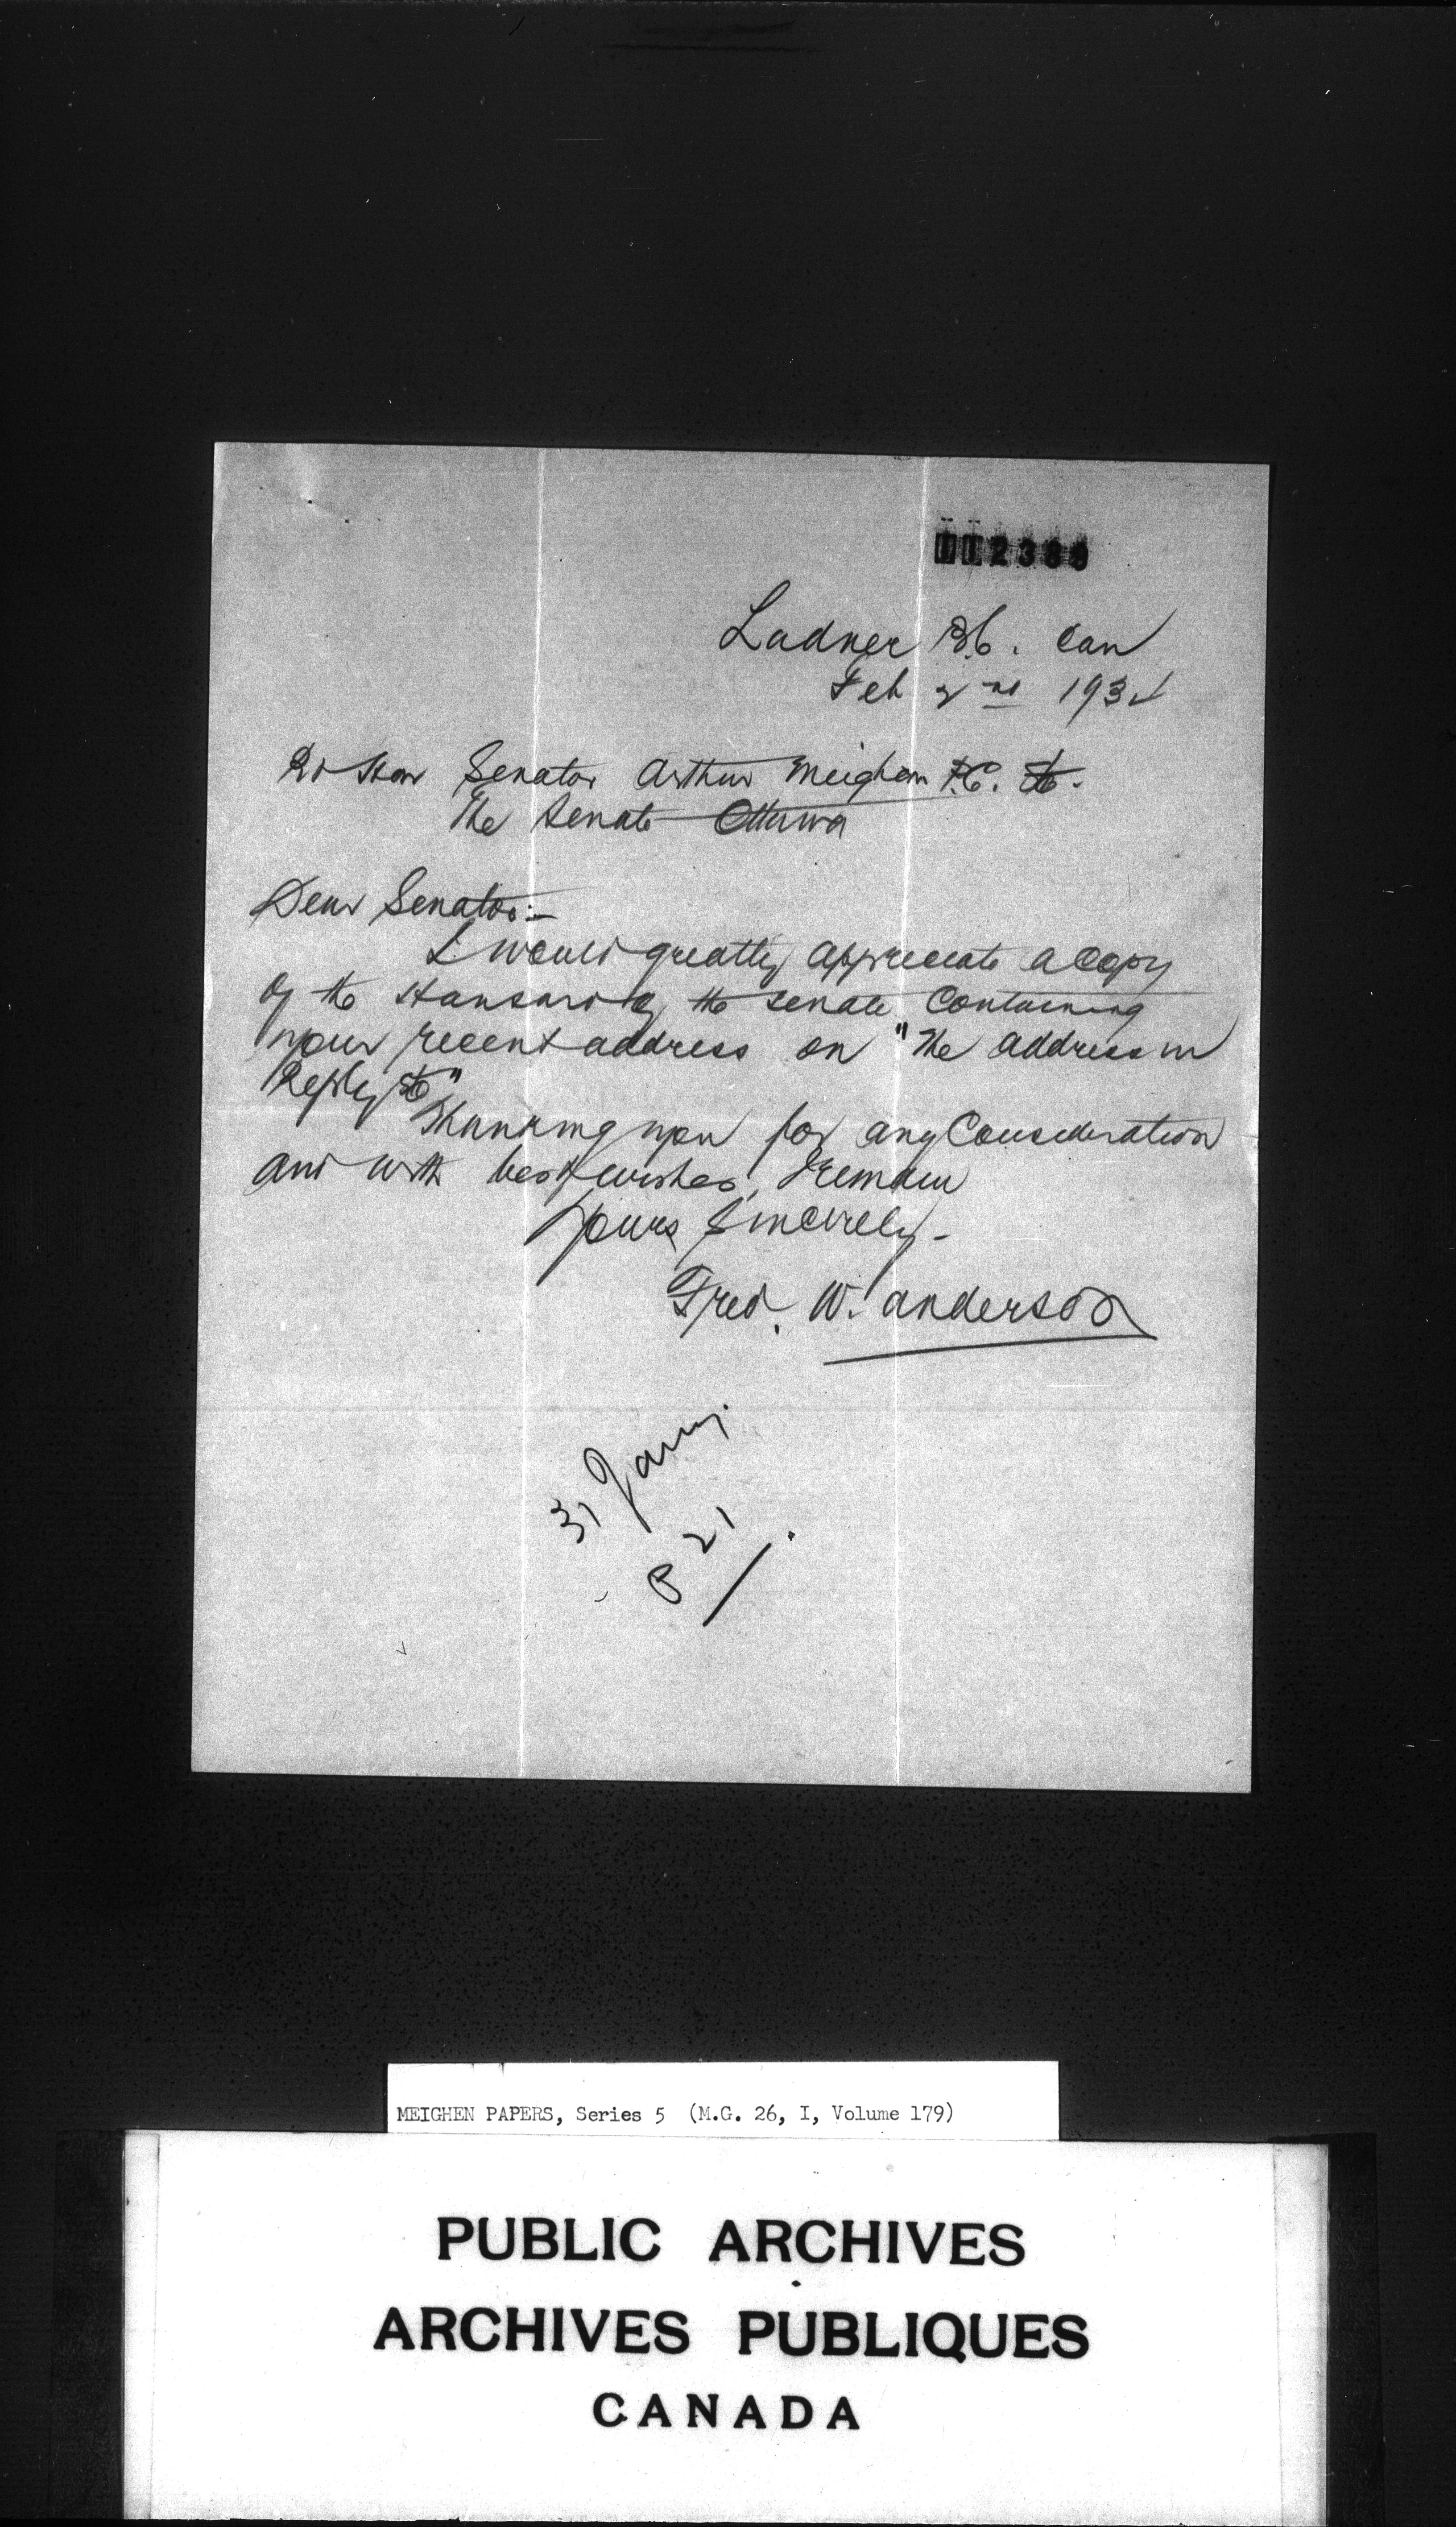 112389
Ladner B.C. Can
Feb 2nd 1934
Rt Hon Senator Arthur Meighen P.C. Etc.
The Senate Ottawa
Dear Senator:-
I would greatly appreciate a copy
of the Hansard of the Senate containing
your recent address on "The address in
Reply etc"
Thanking you for any Consideration
and with best wishes, I remain
Yours Sincerely-
Fred. W. Anderson
31 Jany.
P 21
MEIGHEN PAPERS, Series 5 (M.G. 26, I, Volume 179)
PUBLIC ARCHIVES
ARCHIVES PUBLIQUES
CANADA